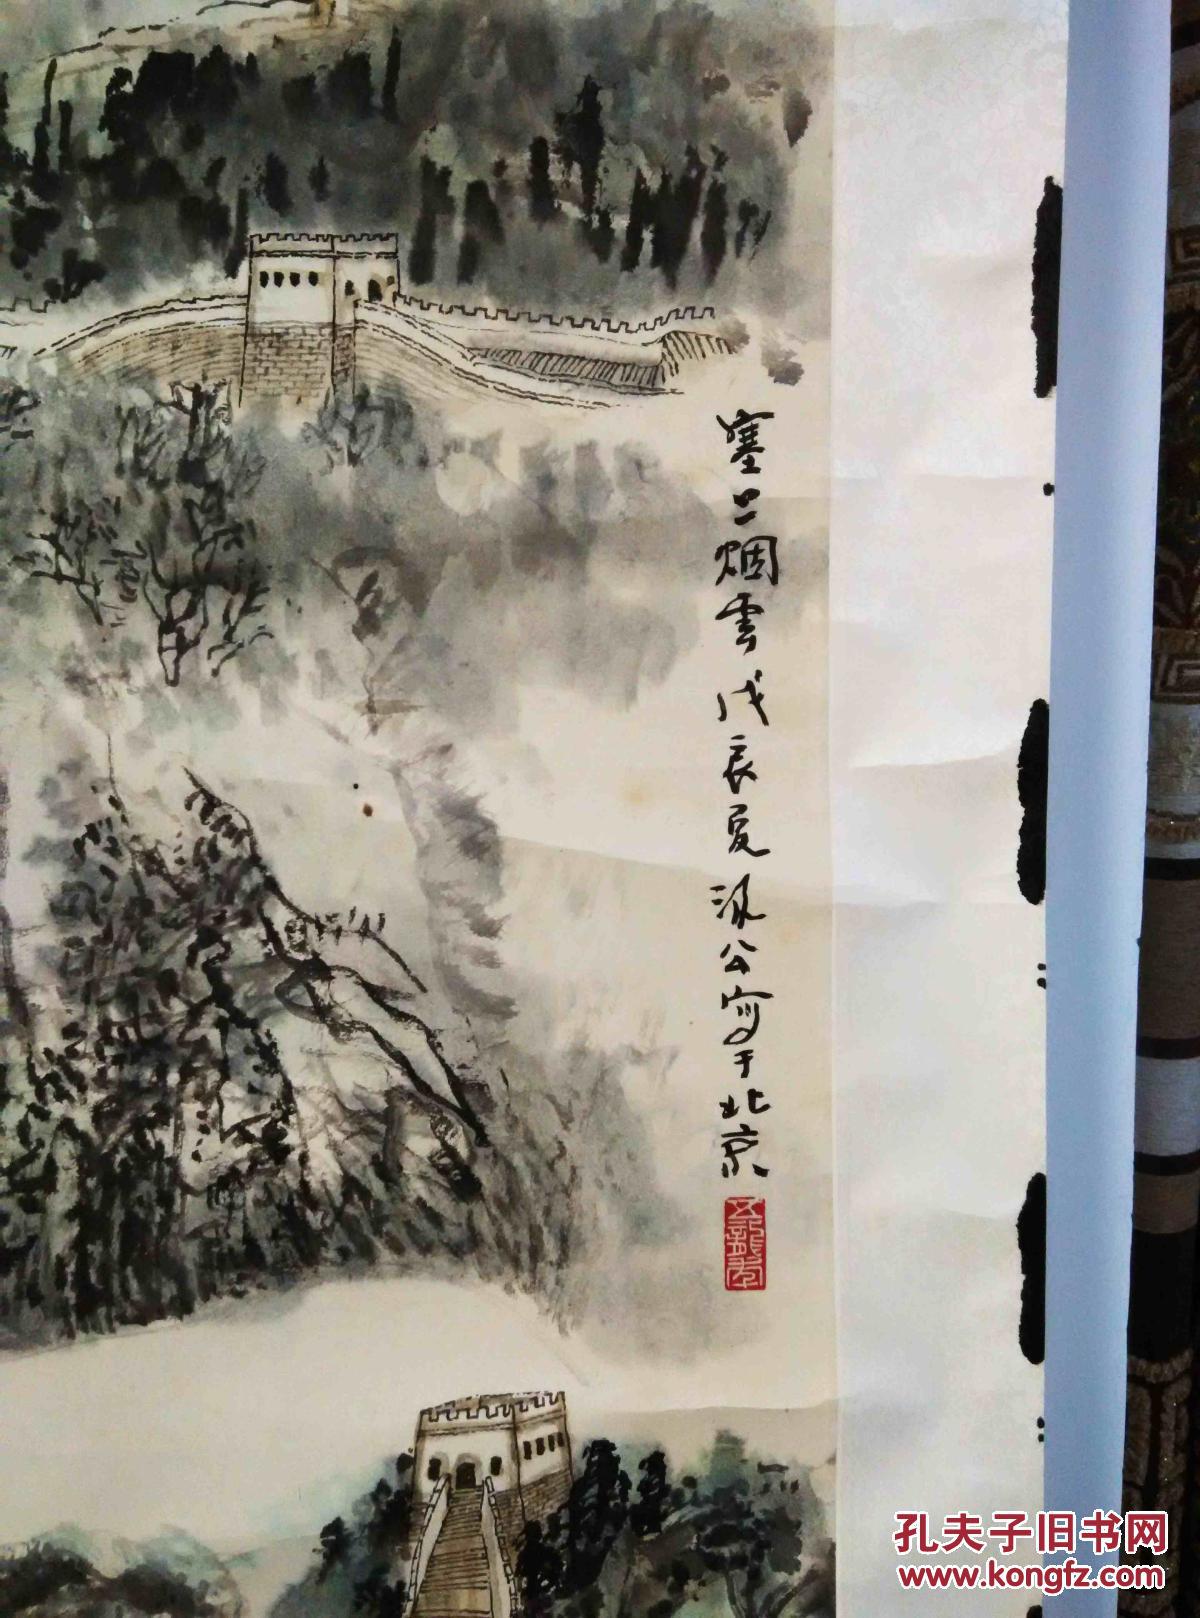 塞上烟雲戊辰夏泳公写于北京
孔夫子旧书网
www.kongfz.com